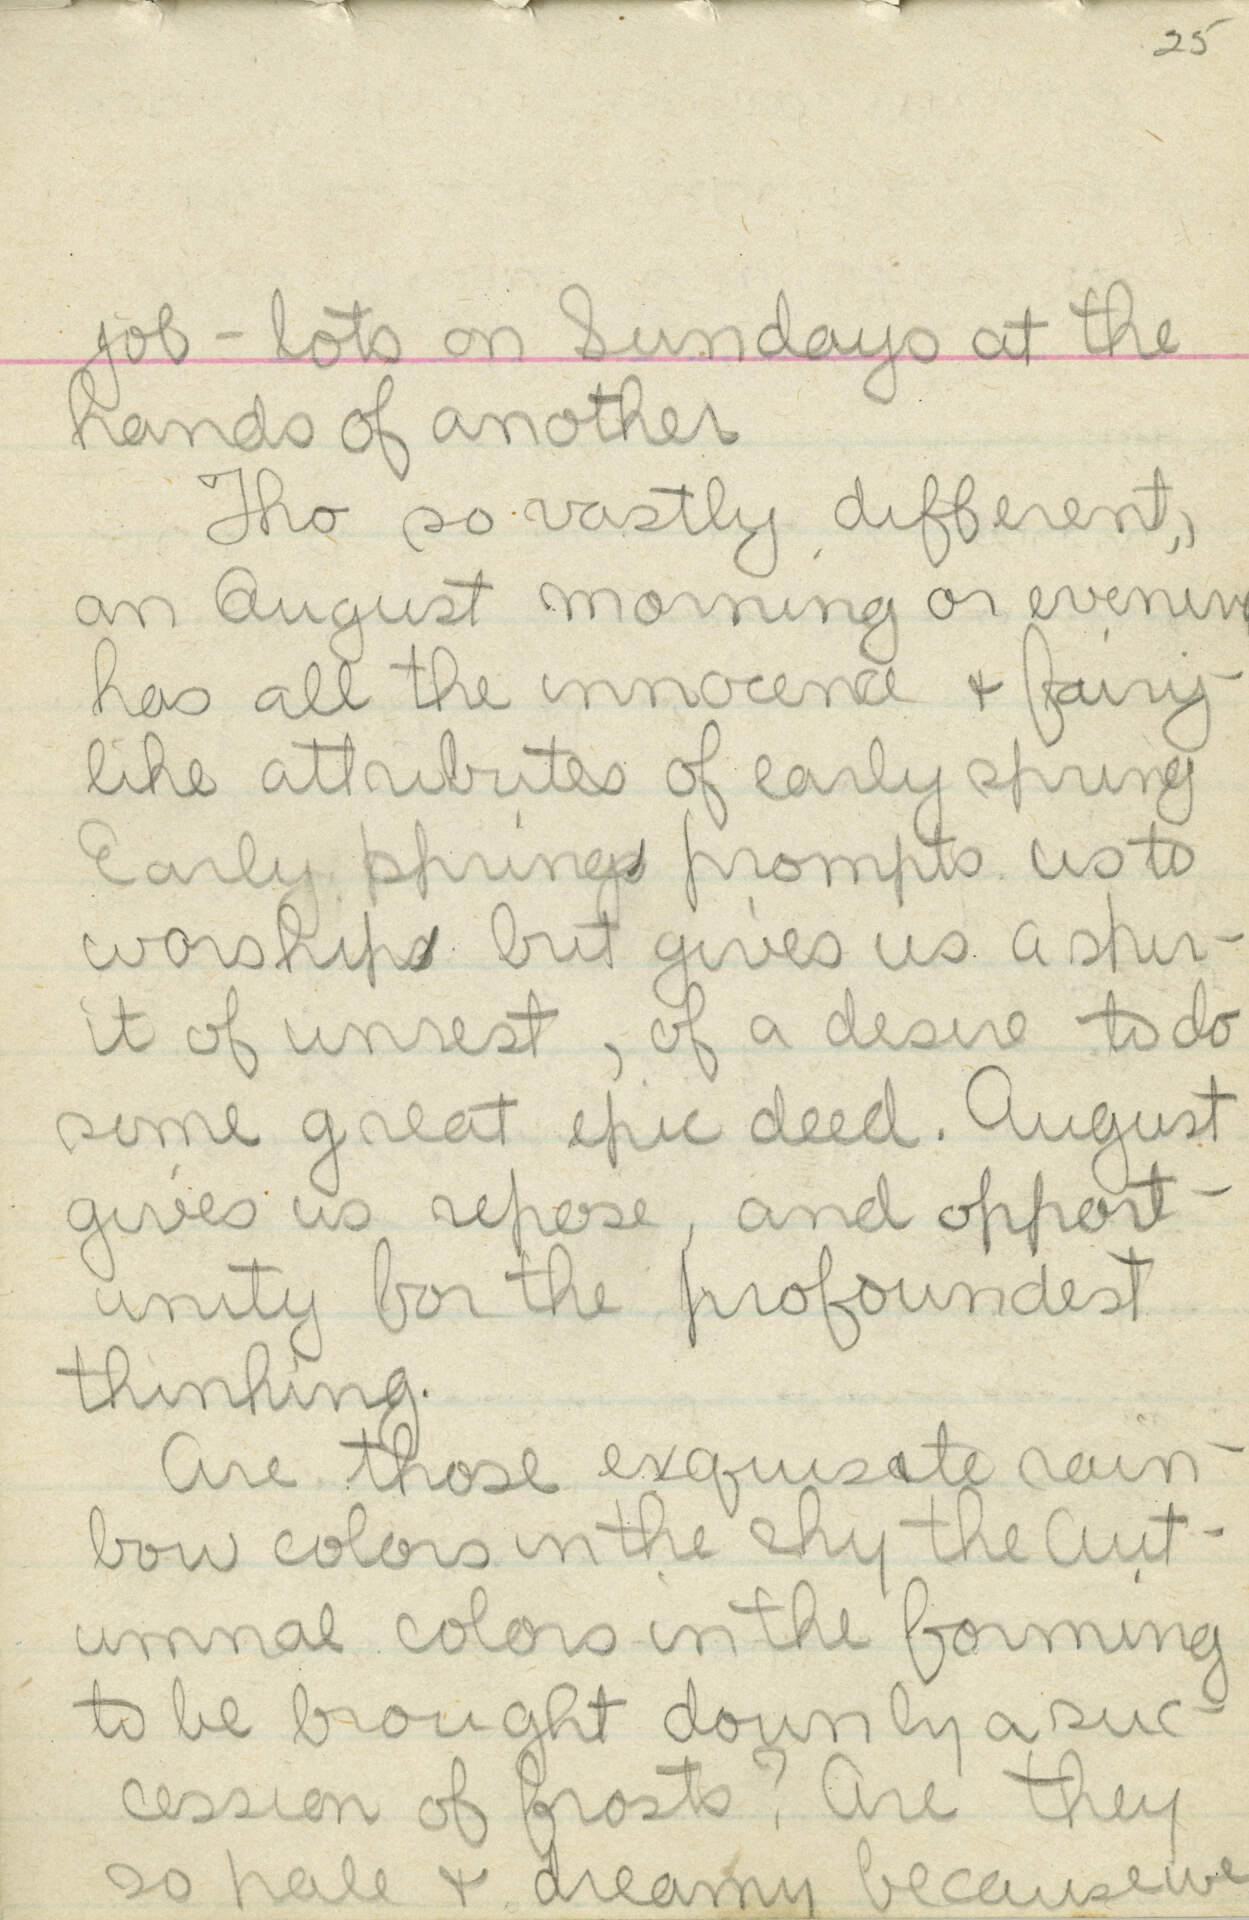 25
job-lots on Sundays at the
hands of another
Tho so vastly different,
an August morning or evening
has all the innocence & fairy-
like attributes of early spring
Early springs prompts us to
worships but gives us a spir-
it of unrest, of a desire to do
some great epic deed. August
gives us repose, and opport-
unity for the profoundest
thinking.
Are those exquisite rain-
bow colors in the sky the Aut-
umnal colors in the forming
to be brought down by a suc-
cession of frosts? Are they
so pale & dreamy because we